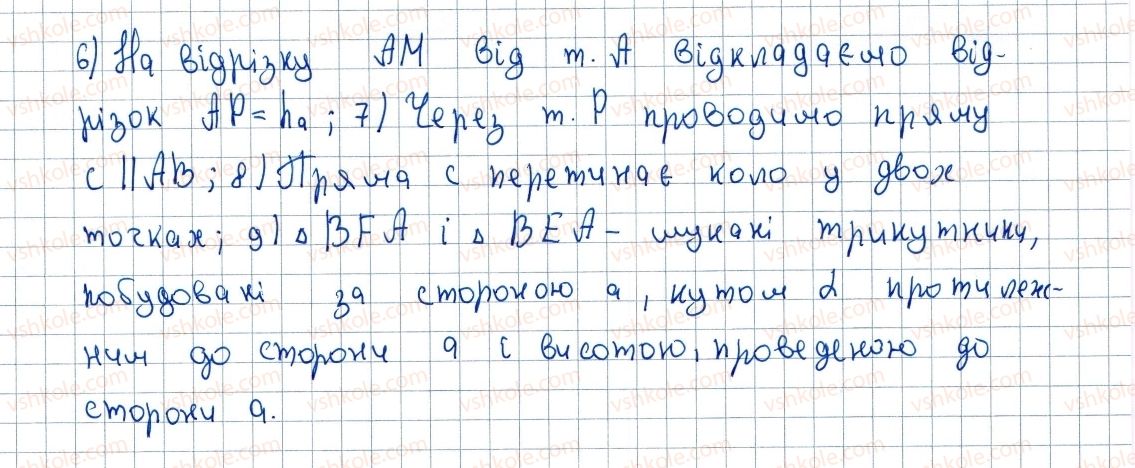 6) На відрізку АМ від т. А відкладаємо від-
різок АР = hₐ; 7) Через т. Р проводимо пряму
с || АВ; 8) Пряма с перетинає коло у двох
точках; 9) △ BFA і △ BEA - шукані трикутники,
побудовані за стороною а, кутом α протилеж-
ним до сторони а і висотою, проведеною до
сторони а.